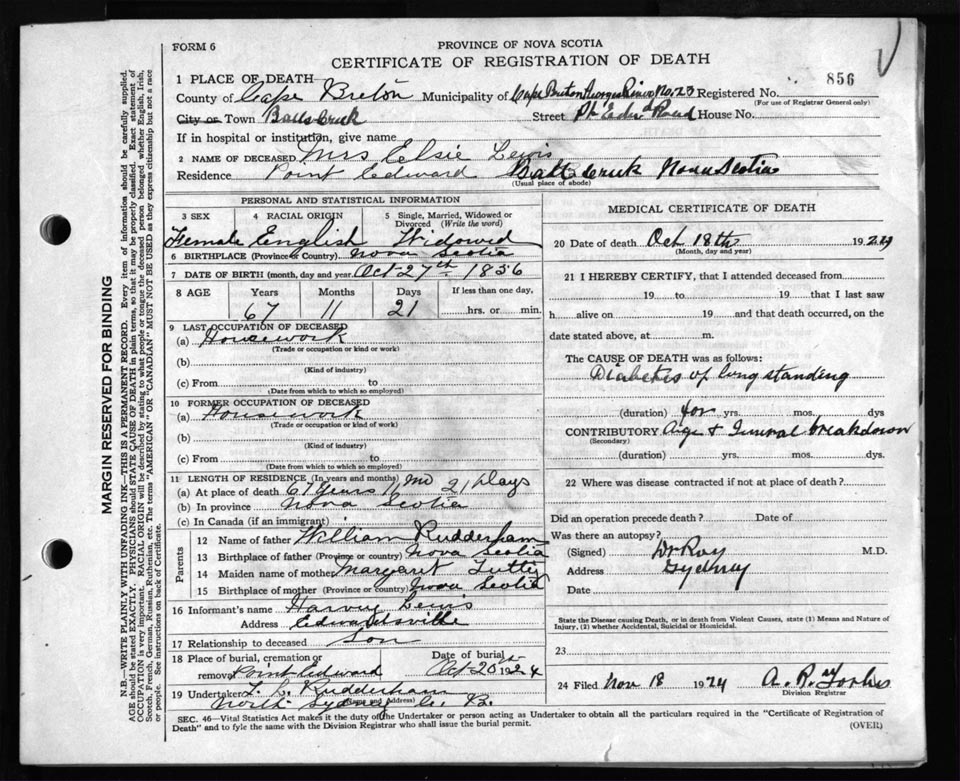 FORM 6
PROVINCE OF NOVA SCOTIA
CERTIFICATE OF REGISTRATION OF DEATH
856
1 PLACE OF DEATH
County of Cape Breton Municipality of Cape Breton Georges River No. 23 Registered No.
(For use of Registrar General only)
City or Town Balls Creek Street Pt Edw'd Road House No.
If in hospital or institution, give name
2 NAME OF DECEASED Mrs Elsie Lewis
Residence Point Edward Nova Scotia
(Usual place of abode)
PERSONAL AND STATISTICAL INFORMATION
3 SEX 4 RACIAL ORIGIN 5 Single, Married, Widowed or Divorced (Write the word)
Female English Widowed
6 BIRTHPLACE (Province or Country) Nova Scotia
7 DATE OF BIRTH (month, day and year) Oct 27th 1856
8 AGE Years Months Days If less than one day,
67 11 21 hrs. or min.
9 LAST OCCUPATION OF DECEASED
(a) Housework
(Trade or occupation or kind or work)
(b)
(Kind of industry)
(c) From to
(Date from which to which so employed)
10 FORMER OCCUPATION OF DECEASED
(a) Housework
(Trade or occupation or kind of work)
(b)
(Kind of industry)
(c) From to
(Date from which to which so employed)
11 LENGTH OF RESIDENCE (In years and months)
(a) At place of death 67 Years 11 Mo 21 Days
(b) In province Nova Scotia
(c) In Canada (if an immigrant)
Parents
12 Name of father William Rudderham
13 Birthplace of father (Province or country) Nova Scotia
14 Maiden name of mother Margaret
15 Birthplace of mother (Province or country) Nova Scotia
16 Informant's name Harvey Lewis
Address Edwardsville
17 Relationship to deceased Son
18 Place of burial, cremation or removal Point Edward Date of burial Oct 20th 1924
19 Undertaker Rudderham
(Name and Address)
North Sydney C. B.
MEDICAL CERTIFICATE OF DEATH
20 Date of death Oct 18th 1924
(Month, day and year)
21 I HEREBY CERTIFY, that I attended deceased from
19 to 19 that I last saw
h alive on 19 and that death occurred, on the
date stated above, at m.
The CAUSE OF DEATH was as follows:
Diabetes of long standing
(duration) for yrs. mos. dys
CONTRIBUTORY Age + General breakdown
(Secondary)
(duration) yrs. mos. dys.
22 Where was disease contracted if not at place of death?
Did an operation precede death? Date of
Was there an autopsy?
(Signed) Dr Roy M.D.
Address Sydney
Date
State the Disease causing Death, or in death from Violent Causes, state (1) Means and Nature of Injury, (2) whether Accidental, Suicidal or Homicidal.
23
24 Filed Nov 18 1924 A. R. Forbes
Division Registrar
SEC. 46—Vital Statistics Act makes it the duty of the Undertaker or person acting as Undertaker to obtain all the particulars required in the "Certificate of Registration of
Death" and to fyle the same with the Division Registrar who shall issue the burial permit.
(OVER)
MARGIN RESERVED FOR BINDING
N.B.—WRITE PLAINLY WITH UNFADING INK—THIS IS A PERMANENT RECORD. Every item of information should be carefully supplied.
AGE should be stated EXACTLY. PHYSICIANS should STATE CAUSE OF DEATH in plain terms, so that it may be properly classified. Exact statement of
OCCUPATION is very important. RACIAL ORIGIN will be described by stating to what people or tongue the deceased person belonged whether English, Irish,
Scotch, French, German, Russian, Ruthenian, etc. The terms "AMERICAN" or "CANADIAN" MUST NOT BE USED as they express citizenship but not a race
or people. See instructions on back of Certificate.